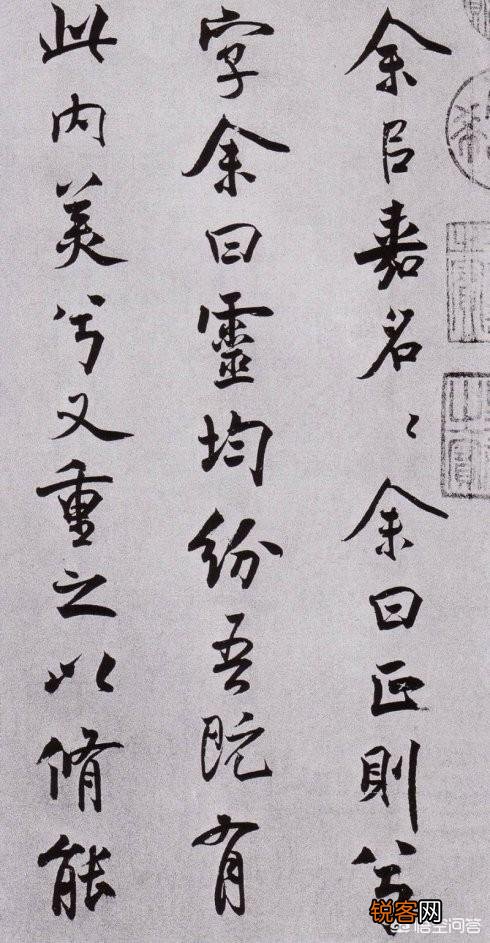 余㠯嘉名〻余曰正則兮
字余曰靈均紛吾既有
此内美兮又重之以脩能
锐客网
悟空问答